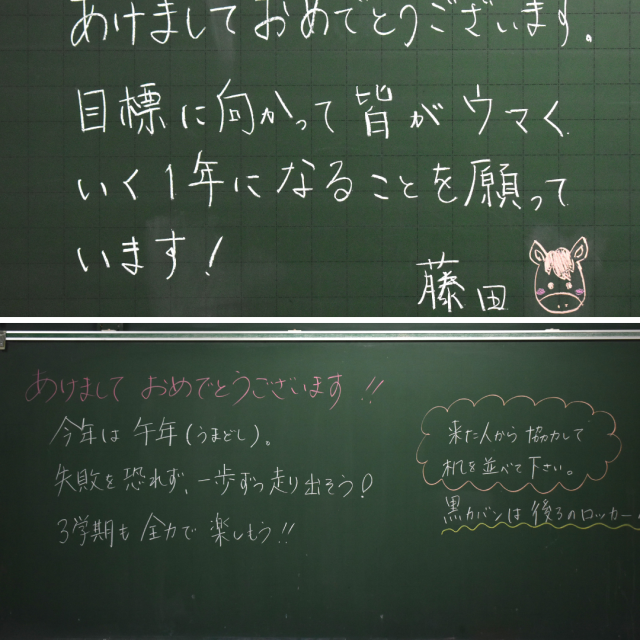 あけましておめでとうございます。
目標に向かって皆がウマく
いく1年になることを願って
います!
藤田
あけまして おめでとうございます!!
今年は 午年(うまどし)。
失敗を恐れず、一歩ずつ走り出そう!
3学期も 全力で 楽しもう!!
来た人から 協力して
机を並べて下さい。
黒カバンは 後ろのロッカー